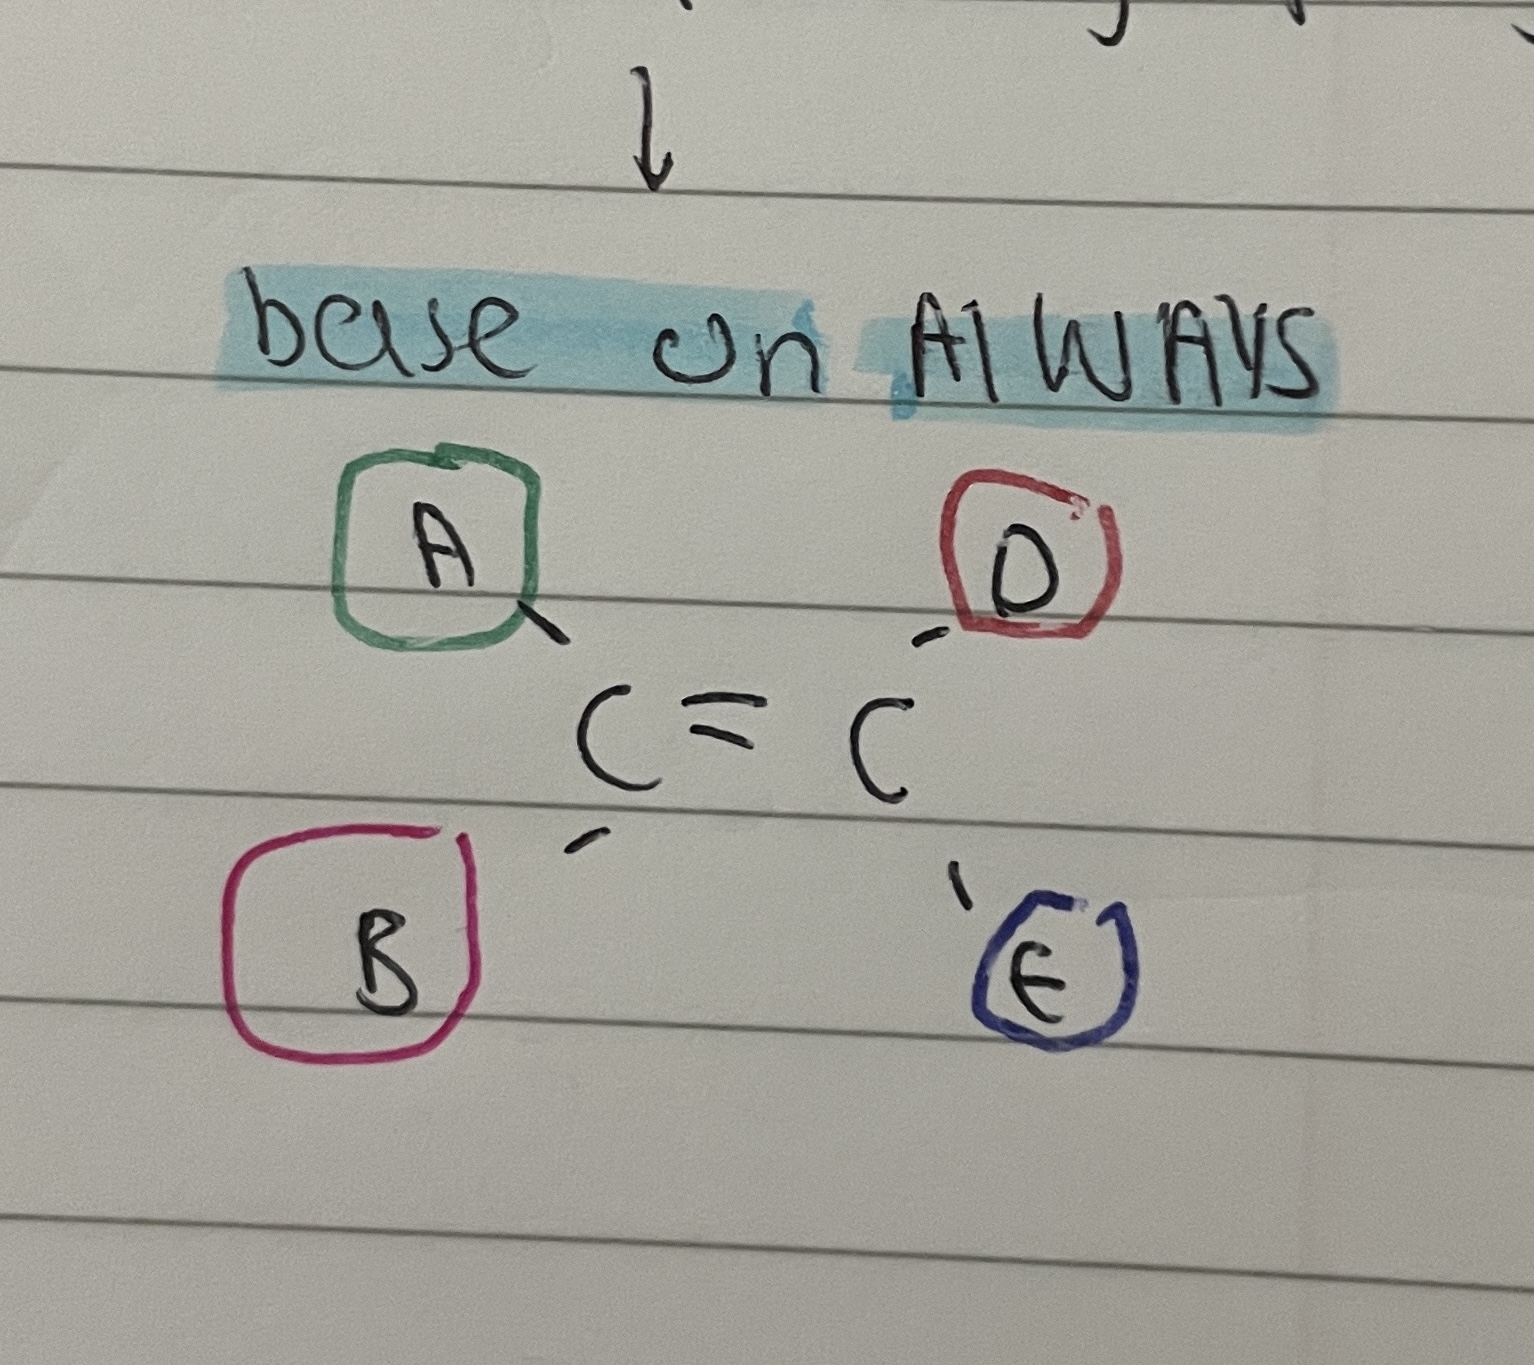 base on AlWAYS
A D
C = C
B E